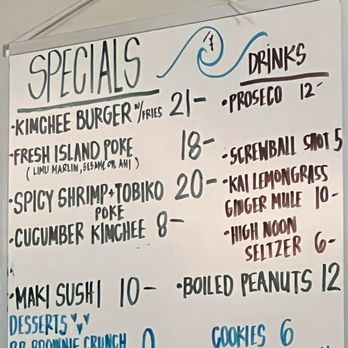 SPECIALS
•KIMCHEE BURGER W/FRIES 21-
•FRESH ISLAND POKE 18-
(LIMU MARLIN, SESAME OIL AHI)
•SPICY SHRIMP+TOBIKO 20-
POKE
•CUCUMBER KIMCHEE 8-
•MAKI SUSHI 10-
DESSERTS
BROWNIE CRUNCH
&
DRINKS
•PROSECO 12-
•SCREWBALL SHOT 5
•KAI LEMONGRASS
GINGER MULE 10-
•HIGH NOON
SELTZER 6-
•BOILED PEANUTS 12
COOKIES 6